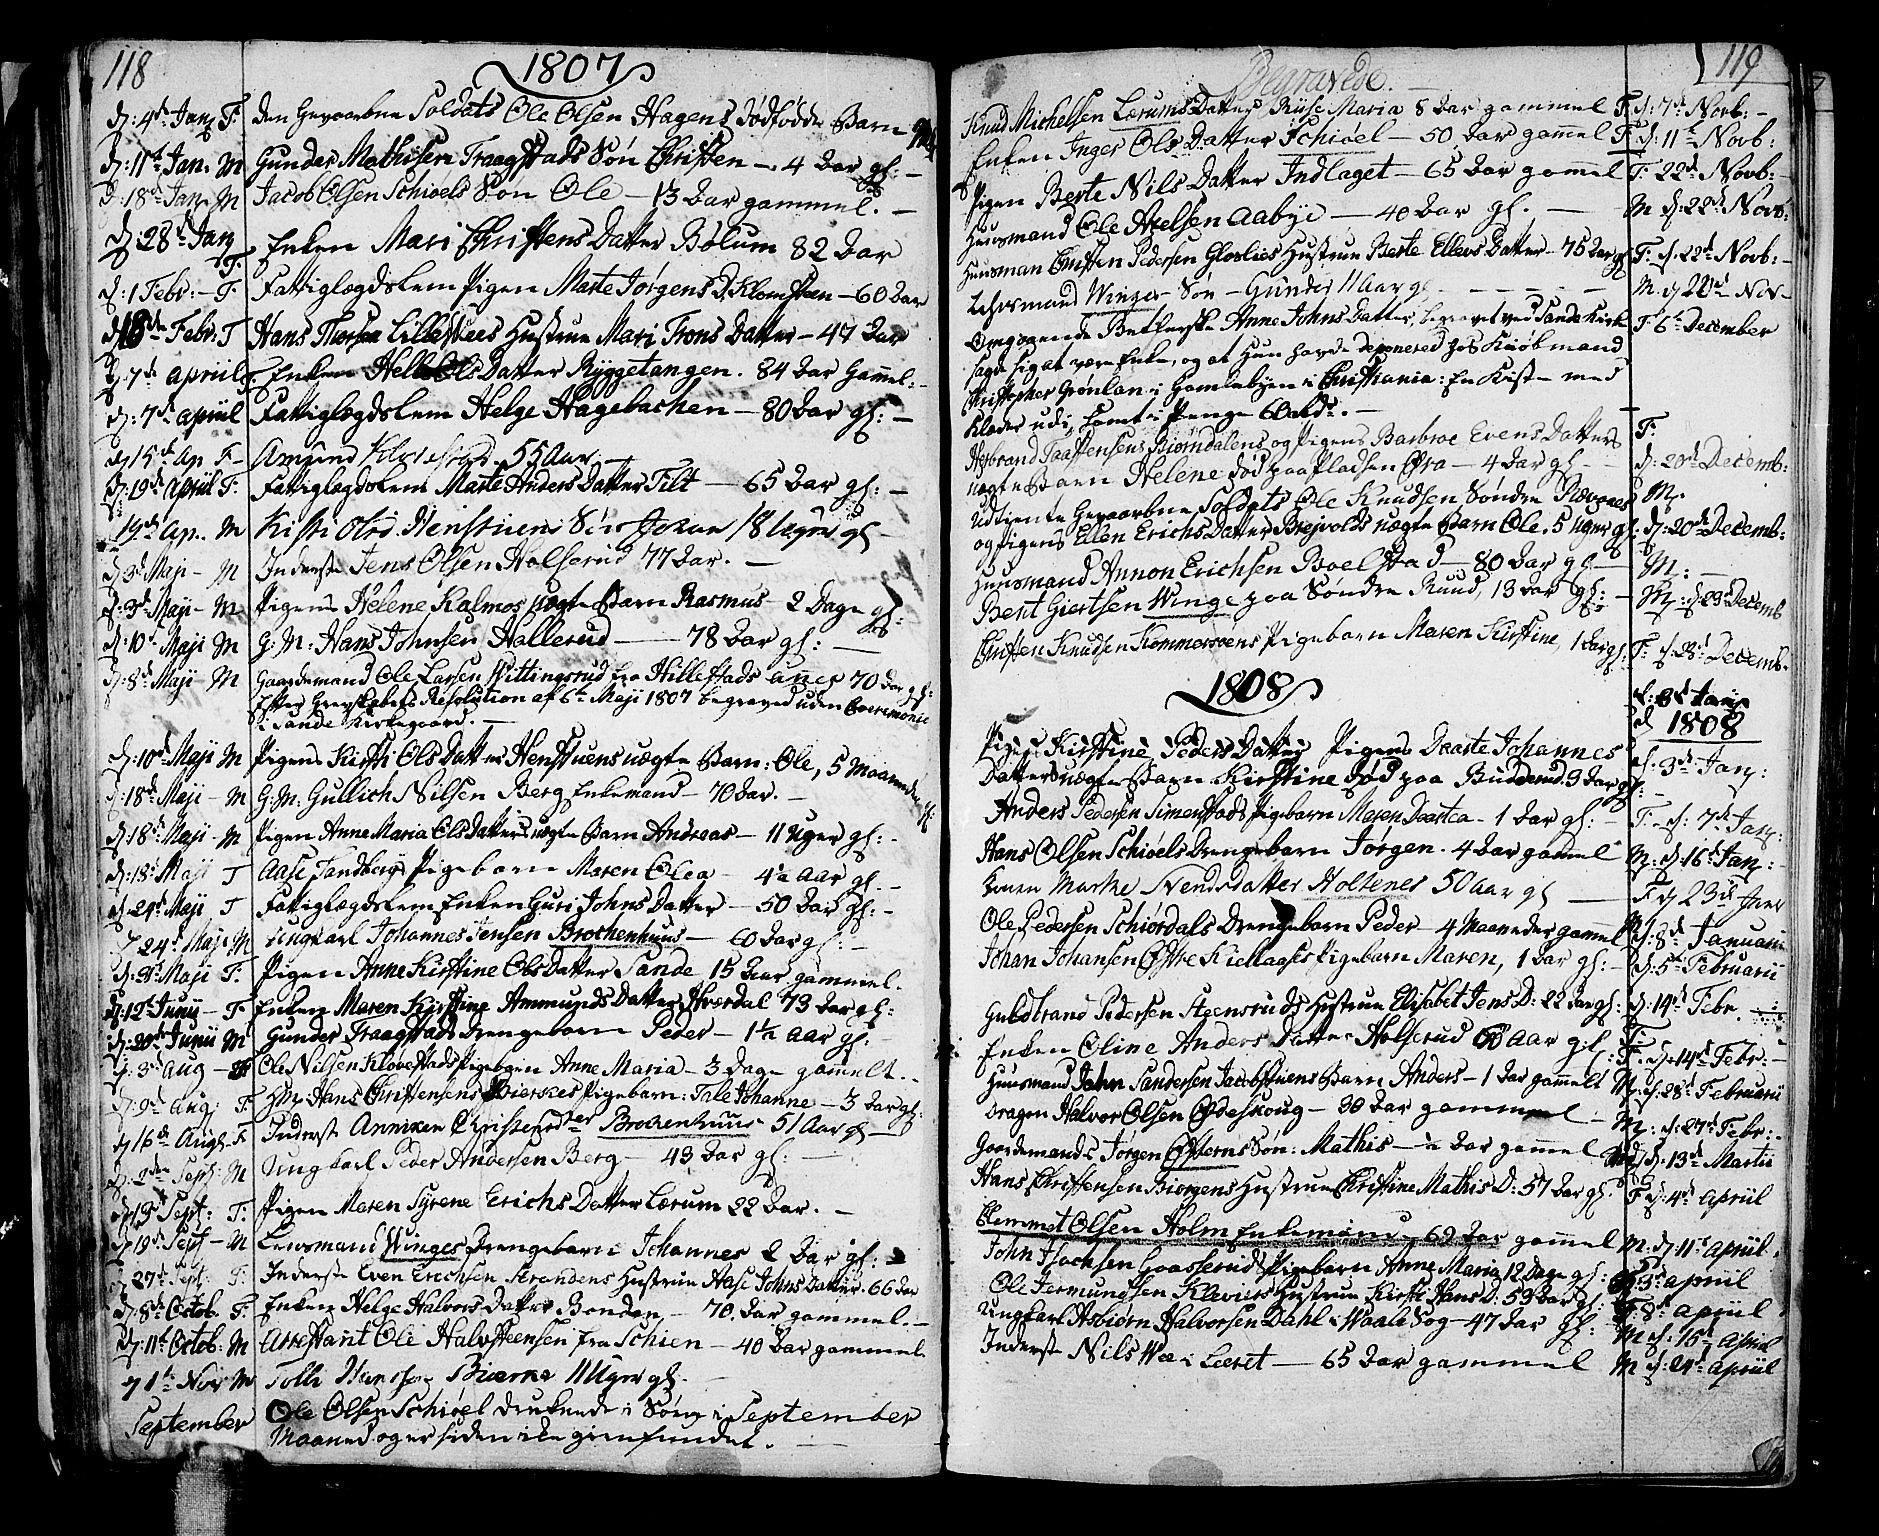 118
1807
d: 4de Jan: F. Den Gevorbne Soldats Ole Olsen Hagens Dødfødde Barn
d: 11te Jan: M Gunder Mathisen Traagstads Søn Christen — 4 Aar gl: —
d: 18de Jan: M Jacob Olsen Schiøels Søn Ole — 13 Aar gammel. —
d 28de Jan F. Enken Mari Christens Datter Bolum 82 Aar
d: 1 Febr: — F. Fattiglægdslem Pigen Marte Jørgens D. Klomsteen — 60 Aar
d 18de Febr: F Hans Lillestees Hustrue Mari Trons Datter — 47 Aar
d: 7de Apriil Enken Helle Ols Datter Ryggetangen. 84 Aar Gammel. —
d: 7de Apriil Fattiglægdslem Helge Hagebachen — 80 Aar gl: —
d 15de Ap F — Amund 55 Aar. —
d: 19de Apriil F. Fattiglægdslem Marte Anders Datter Tilt — 65 Aar gl: —
19de Ap. M Kisti Olsd. Henstuens Søn Johan 18 Uger gl —
d 3de Maji — M Inderste Jens Olsen Holserud 77 Aar. —
d: 3de Maji — M Pigens Helene Kalmos uægte Barn Rasmus — 2 Dage gl:
d: 10de Maji M G: M: Hans Johnsen Hallerud — 78 Aar gl: —
d: 8de Maji — M Gaardemand Ole Larsen Wittingsrud fra Hillestads Annex 70 Aar gl:
Efter Grevskabets Resolution af 6te Maji 1807 begraved uden Ceremonie
i Sande Kirkegaard. —
d: 10de Maji M Pigens Kirsti Ols Datter Henstuens uægte Barn: Ole, 5 Maaneder gl:
d: 18de Maji — M G: M: Gullich Nilsen Berg Enkemand — 70 Aar. —
d: 18de Maji — M Pigen Anne Maria Ols Datters uægte Barn Andreas — 11 Uger gl: —
d: 18de Maji F Aase Sandbergs Pigebarn Maren Olea — 4½ Aar gl. —
d. 24de Maji F Fattiglægdslem Enken Guri Johns Datter — 50 Aar gl: —
24de Maji M Ungkarl Johannes Jensen Brochenhuus — 60 Aar gl: —
d: 31te Maji F. Pigen Anne Kirstine Ols Datter Sande 15 Aar gammel.
d: 12te Junii — F. Enken Maren Kirstine Ammunds Datter Hværdal 73 Aar gl:
d: 20de Junii M Gunder Traagstads Drengebarn Peder — 1½ Aar gl:
d: 3de Aug — F Ole Nilsen Kløvestads Pigebarn Anne Maria — 3 Dage gammelt. —
d: 9de Aug: F. Hans Christensens Bierkes Pigebarn: Tale Johanne — 3 Aar gl:
d 16de Aug F. Inderste Anniken Christensdter Brochenhuus 51 Aar gl —
d: 2den Sep: M Ung karl Peder Andersen Berg — 43 Aar gl: —
d 13de Sept: F. Pigen Maren Syrene Erichs Datter Lærum 22 Aar. —
d 19de Sept — M Lensmand Winges Drengebarn Johannes 2 Aar gl:
d 27de Sept: F. Inderste Even Erichsen Strandens Hustrue Aase Johns Datter. 66 Aar
d: 8de Octob. F. Enken Helge Halvors Datter Bonden — 70. Aar gammel. —
d: 11te Octob: M Arrestant Ole Halvsteensen fra Schien — 40 Aar gammel
d 1te Nov M Tolli Hansson Bierke 11 Uger gl.
September Ole Olsen Schiøel druknede i Søen i September
Maaned og er siden ike gienfunden. —
119
Begravede. —
Knud Michelsen Lærums Datter Rise Maria 8 Aar gammel F. d: 7de Novb: —
Enken Inger Ols Datter Schiøel — 50 Aar gammel F d: 11te Novb:
Pigen Berte Nils Datter Indlaget — 65 Aar gammel F: 22de Novb: —
Huusmand Ole Axelsen Aabye — 40 Aar gl. — M d: 22de Novb:
Huusman Christen Pedersen Gloslies Hustrue Berte Ellevs Datter — 75 Aar gl F. d. 22de Novb: —
Lehnsmand Winges Søn — Gunder 11 Aar gl — M. d 22de Nov —
Omgaaende Betlerske Anne Johns Datter, begravet ved Sande Kirke F 6te December
sagde sig at være Enke, og at hun havde deponered hos Kiøbmand
Christopher Grønlan i Gamlebyen i Christiania: En Kiste med
Klæder udi, samt i Penge 60 rdlr. —
Herbrand Taaffensens Biørndalens og Pigens Barbroe Evens Datters F.
uægte Barn Helene død paa Pladsen Øvra — 4 Aar gl — d: 20de Decemb:
Udtiente Gevorbne Soldats Ole Knudsen Søndre Rævaaes M.
og Pigens Ellen Erichs Datter Brejvolds uægte Barn Ole. 5 Uger gl: d: 20de Decemb:
Huusmand Annon Erichsen Boelstad — 80 Aar gl — M: —
Bent Giertsen Winge paa Søndre Ruud, 13 Aar gl: — M: d: 23de Decemb
Christen Knudsen Kommersøens Pigebarn Maren Kirstine, 1 Aar gl: F: d. 28de Decemb.
1808
d: 3de Janr
d 1808
Pigen Kirstine Peders Datter Pigens Daarte Johannes
Datters uægte Barn Kirstine død paa Budderud. 3 Aar gl: d. 3de Jan:
Anders Pedersen Simenstads Pigebarn Maren Daartea — 1 Aar gl: — F. d: 7de Jan:
Hans Olsen Schiøels Drengebarn Jørgen. 4 Aar gammel M: d: 16de Jan: —
Konen Marthe Svendsdatter Holtenes 50 Aar gl — F d 23de Janr
Ole Pedersen Schiordals Drengebarn Peder — 4 Maaneder gammel M d: 8de Januarii
Johan Johansen Østre Kiellaases Pigebarn Maren, 1 Aar gl: — d: 5te Februarii
Guldbrand Pedersen Steensruds Hustrue Elisabet Jens D: 22 Aar gl: d: 14de Febr.
Enken Oline Anders Datter Holserud Aar gl: F. d. 14de Febr: —
Huusmand John Sandersen Jacobstuens Barn Anders — 1 Aar gammelt M. d. 28de Februarii
Dragon Halvor Olsen Ødeskoug — 30 Aar gammel — M: d: 27de Febr: —
Gaardemands Jørgen Østerns Søn: Mathis — ½ Aar gammel M d: 13de Martii
Hans Christensen Biørgens Hustrue Christine Mathis D: 57 Aar gl. F d: 4de Apriil
Clemmet Olsen Holm Enkemand — 69 Aar gammel M. d: 11te Apriil
John Isachsen Gaaserud Pigebarn Anne Maria 12 Dage gl: 3de Apriil
Ole Jermundsen Klavers Hustrue Kirsti Hans D: 53 Aar gl: F. 8de Apriil
Ungkarl Asbiørn Halvorsen Dahl i Waale Sog — 47 Aar gl: M d. 15de Apriil
Inderste Nils Wee i Leeret — 65 Aar gammel M d. 24de Apriil